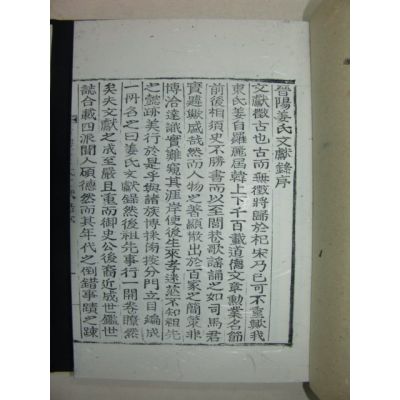 晉陽姜氏文獻錄序
文獻徵古也古而無徵將歸於杞宋乃已可不重歟我
東氏姜自羅麗屆韓上下千百載道學文章勳業名節
前後相須史不勝書而以至閭巷歌謠誦之如司馬君
實遯歟盛哉然而人物之著顯散出於百家之簡策非
博洽達識實難窺其涯岸使後生來孝達基不知祖先
之懿跡美行於是乎與諸族博採淘按分門立目編成
一冊名之曰姜氏文獻錄然後祖先事行一開卷瞭然
矣夫文獻之成至嚴且重而御史公後裔近成世鑑世
誌合載四派聞人碩德然而其年代之倒錯事蹟之踈